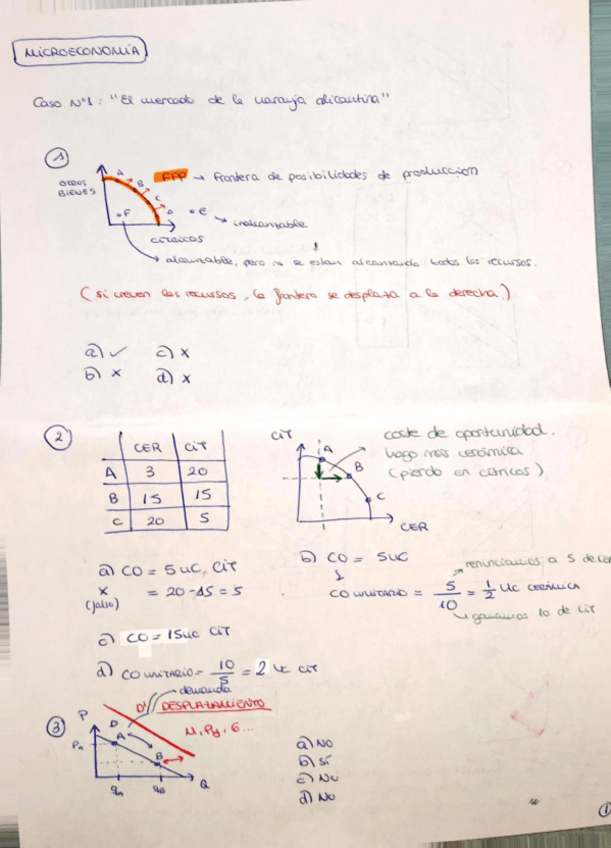 MICROECONOMÍA
Caso Nº1: "El mercado de la naranja alicantina"
1
OTROS BIENES
A
B
C
D
F
E
CÍTRICOS
FPP → frontera de posibilidades de producción
→ inalcanzable
→ alcanzable, pero no se están alcanzando todos los recursos.
(si crecen los recursos, la frontera se desplaza a la derecha.)
a) ✓ c) x
b) x d) x
2
CER CIT
A 3 20
B 15 15
C 20 5
CIT
A
B
C
CER
coste de oportunidad.
hago más cerámica
(pierdo en cítricos)
a) CO = 5 uc. CIT
x = 20-15 = 5
(falso)
b) CO = 5UC
→ renunciamos a 5 de cer
CO UNITARIO = 5/10 = 1/2 Uc CERÁMICA
→ ganamos 10 de cit
c) CO = 15uc CIT
d) CO UNITARIO = 10/5 = 2 uc CIT
3
P
D
A
B
Q
demanda
D' DESPLAZAMIENTO
M, Py, G...
a) NO
b) SÍ
c) NO
d) NO
1